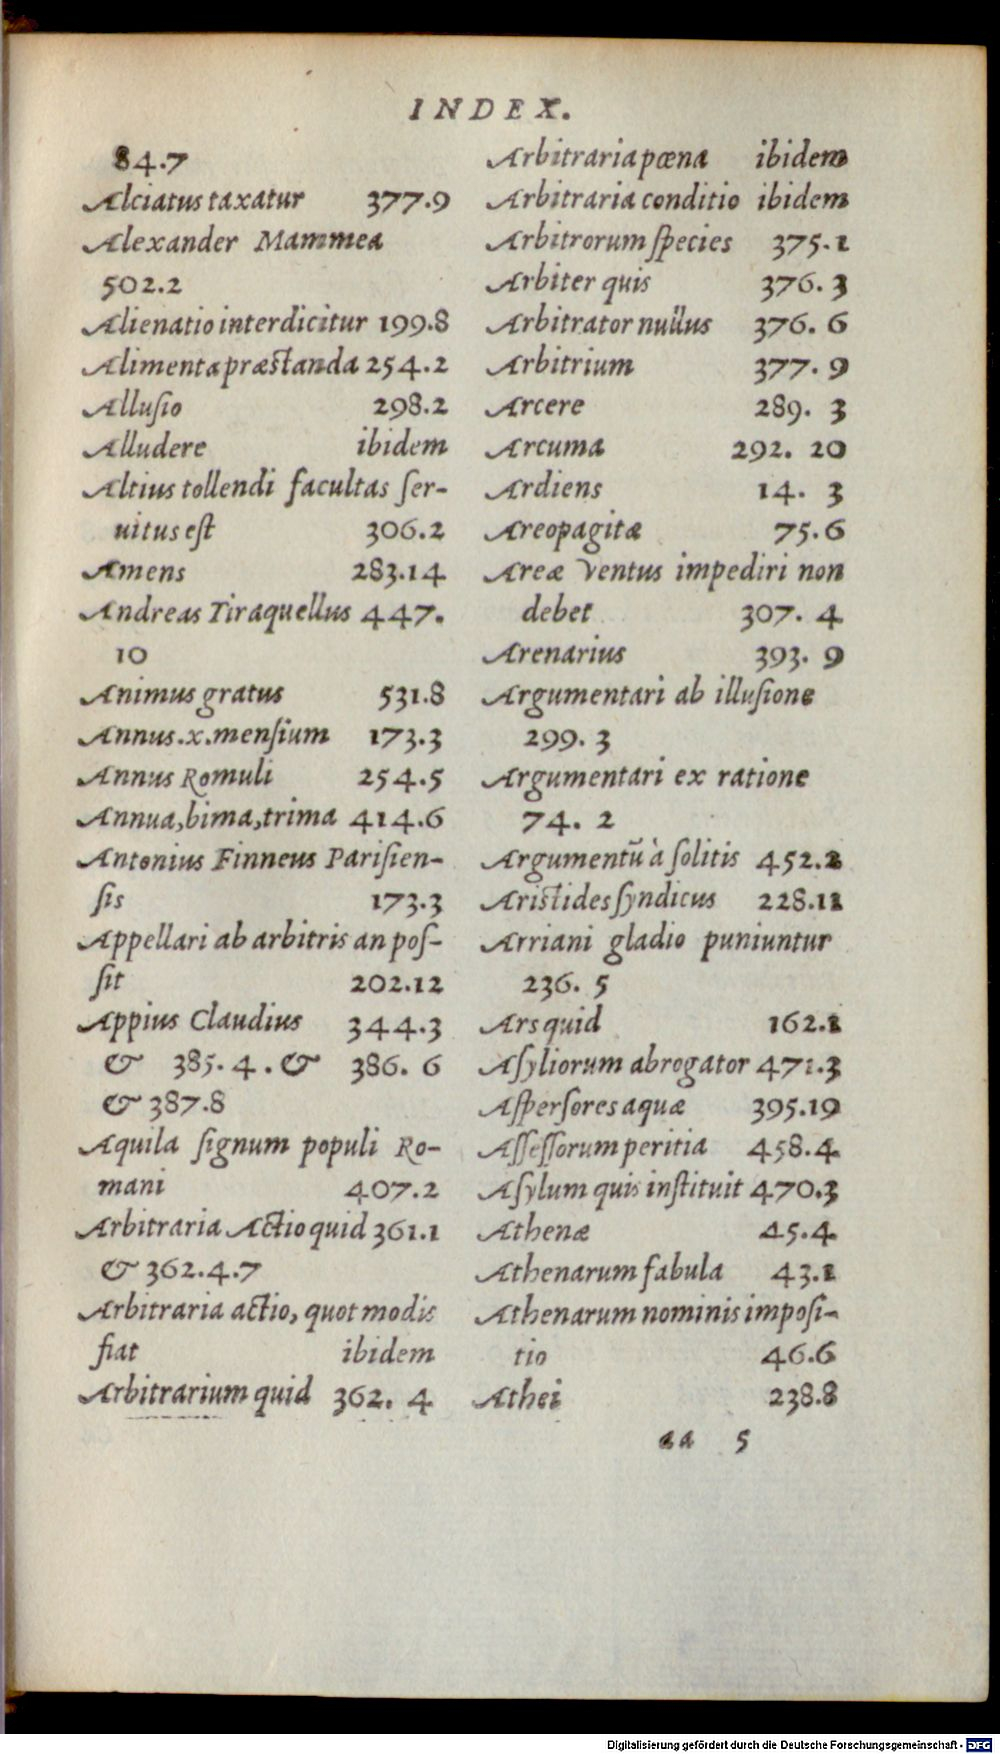 INDEX.
84.7
Alciatus taxatur 377.9
Alexander Mammea
502.2
Alienatio interdicitur 199.8
Alimenta præstanda 254.2
Allusio 298.2
Alludere ibidem
Altius tollendi facultas ser-
uitus est 306.2
Amens 283.14
Andreas Tiraquellus 447.
10
Animus gratus 531.8
Annus.x.mensium 173.3
Annus Romuli 254.5
Annua, bima, trima 414.6
Antonius Finneus Parisien-
sis 173.3
Appellari ab arbitris an pos-
sit 202.12
Appius Claudius 344.3
& 385.4. & 386.6
& 387.8
Aquila signum populi Ro-
mani 407.2
Arbitraria Actio quid 361.1
& 362.4.7
Arbitraria actio, quot modis
fiat ibidem
Arbitrarium quid 362. 4
Arbitraria pœna ibidem
Arbitraria conditio ibidem
Arbitrorum species 375.1
Arbiter quis 376. 3
Arbitrator nullus 376. 6
Arbitrium 377. 9
Arcere 289. 3
Arcuma 292. 20
Ardiens 14. 3
Areopagitæ 75.6
Areæ ventus impediri non
debet 307. 4
Arenarius 393. 9
Argumentari ab illusione
299. 3
Argumentari ex ratione
74. 2
Argumentū à solitis 452.2
Aristides syndicus 228.11
Arriani gladio puniuntur
236. 5
Ars quid 162.1
Asyliorum abrogator 471.3
Aspersores aquæ 395.19
Assessorum peritia 458.4
Asylum quis instituit 470.3
Athenæ 45.4
Athenarum fabula 43.1
Athenarum nominis imposi-
tio 46.6
Athei 238.8
aa 5
Digitalisierung gefördert durch die Deutsche Forschungsgemeinschaft - DFG